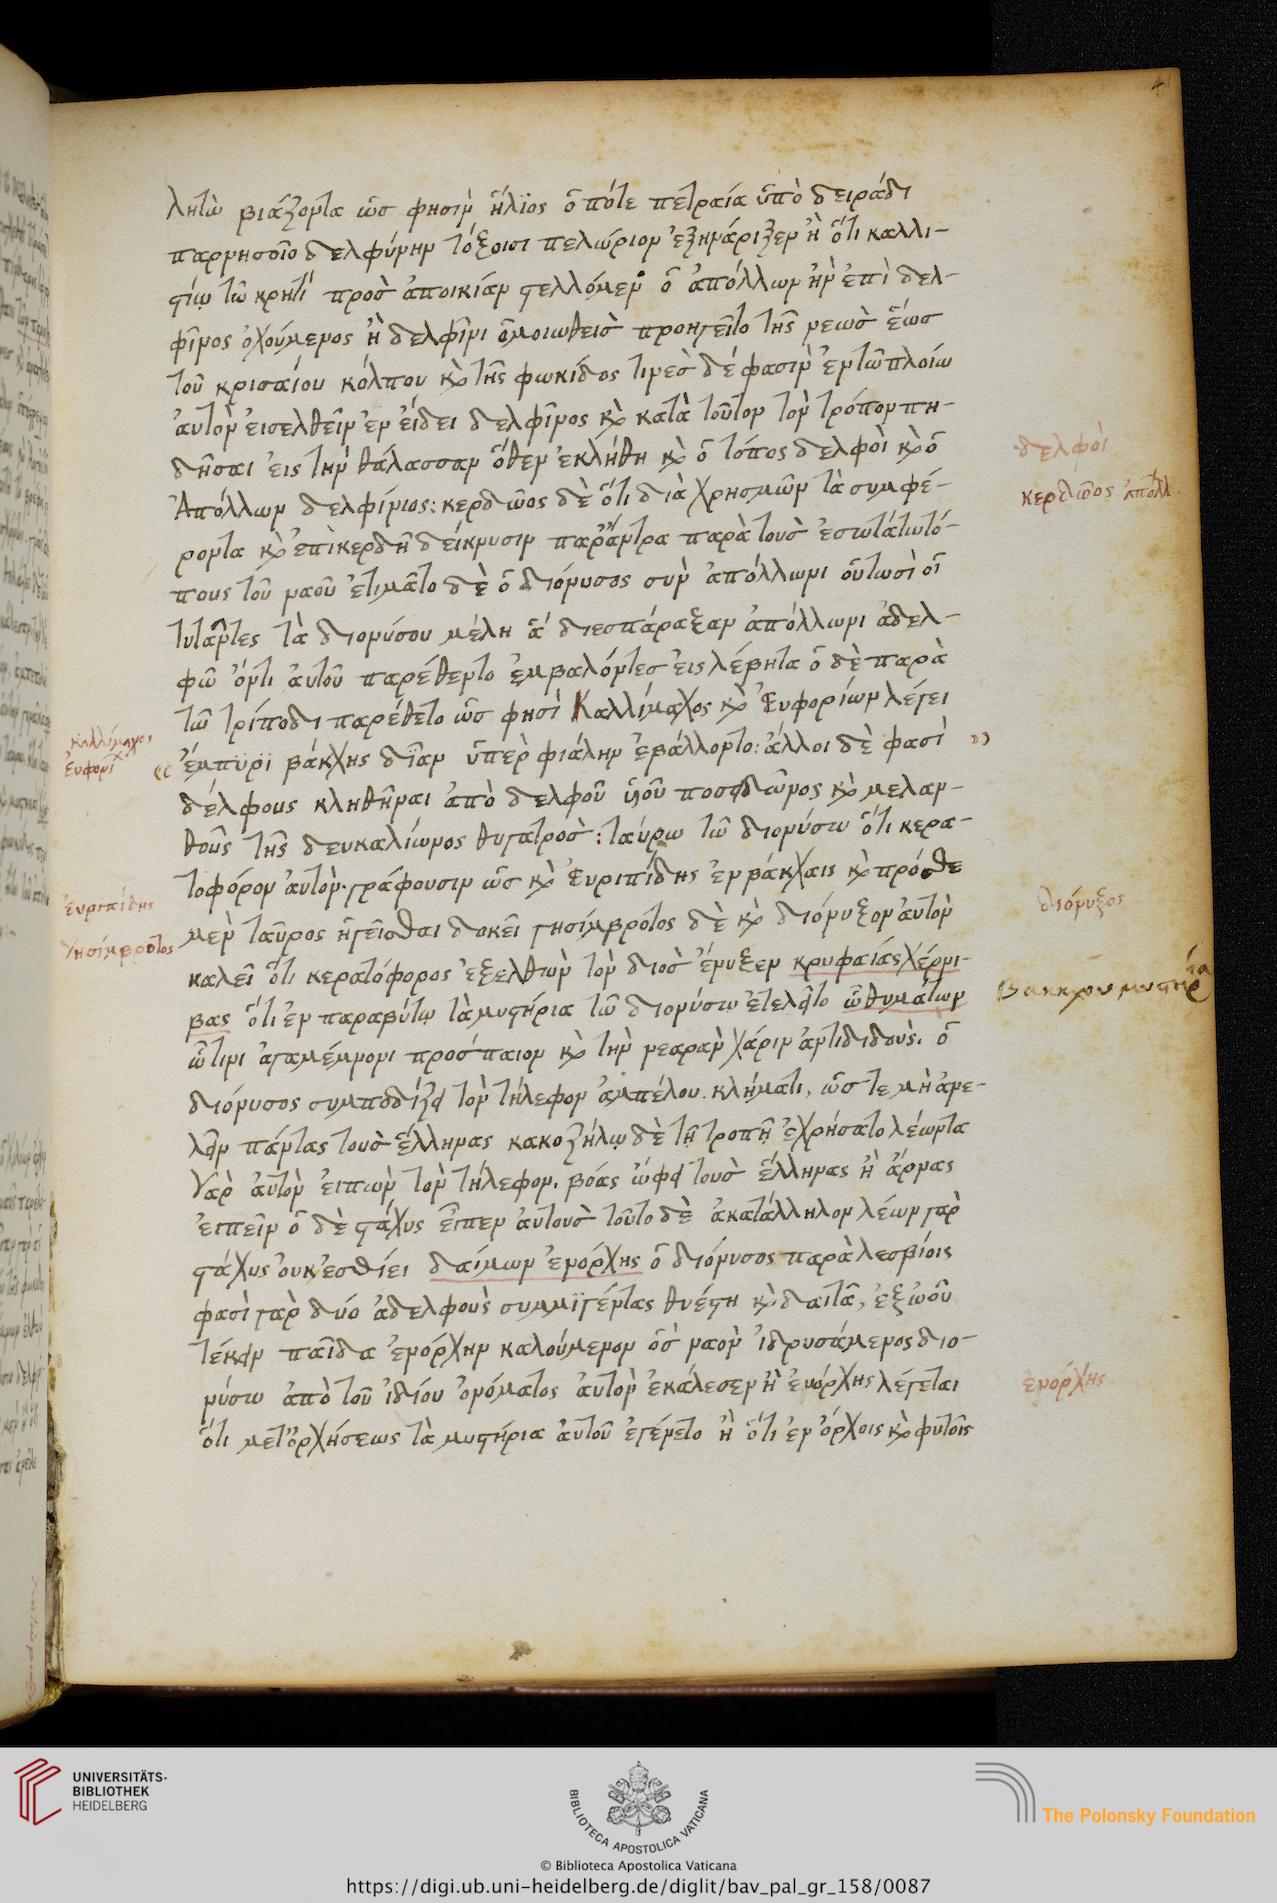 λητὼ βιάζοντα ὥς φησιν ἥλϊος ὁπότε πετραία ὑπὸ δειράδι
παρνησοῖο δελφύνην τόξοισι πελώριον ἐξηνάριξεν ἢ ὅτι καλλι-
στίῳ τῶ κρητὶ πρὸς ἀποικίαν στελλόμενο ὁ ἀπόλλων ἦν ἐπὶ δελ-
φῖνος ὀχούμενος ἢ δελφῖνι ὁμοιωθεὶς προηγεῖτο τῆς νεὼς ἕως
τοῦ κρισαίου κόλπου κὶ τῆς φωκίδος τινὲς δέ φασιν ἐν τῶ πλοίω
ἀυτὸν ἐισελθεῖν ἐν ἐίδει δελφῖνος κὶ κατὰ τοῦτον τὸν τρόπον πη-
δῆσαι ἐις τὴν θάλασσαν ὅθεν ἐκλήθη κὶ ὁ τόπος δελφοὶ κὶ ὁ
Ἀπόλλων δελφίνιος: κερδῶος δὲ ὅτι διὰ χρησμῶν τὰ συμφέ-
ροντα κὶ ἐπικερδῆ δείκνυσιν παρ' ἄντρα παρὰ τοὺς ἐσωτάτω τό-
πους τοῦ ναοῦ ἐτιμᾶτο δὲ ὁ διόνυσος σὺν ἀπόλλωνι οὑτωσὶ οἱ
τιτᾶντες τὰ διονύσου μέλη ἃ διεσπάραξαν ἀπόλλωνι ἀδελ-
φῶ ὄντι ἀυτοῦ παρέθεντο ἐμβαλόντες ἐις λέβητα ὁ δὲ παρὰ
τῶ τρίποδι παρέθετο ὥς φησὶ Καλλίμαχος κὶ Ἐυφορίων λέγει
ἐμπϋρϊ βάκχης δῖαν ὑπὲρ φιάλην ἐβάλλοντο: ἄλλοι δὲ φασὶ
δέλφους κληθῆναι ἀπὸ δελφοῦ ὑϊοῦ ποσειδῶνος κὶ μελαν-
θοῦς τῆς δευκαλίωνος θυγατρός: ταύρω τῶ διονύσω ὅτι κερα-
τοφόρον ἀυτὸν γράφουσιν ὡς κὶ Ἐυριπίδης ἐν βάκχαις κὶ πρόσθε
μὲν ταῦρος ἡγεῖσθαι δοκεῖ στησίμβροτος δὲ κὶ διόνυξον ἀυτὸν
καλεῖ ὅτι κερατόφορος ἐξελθὼν τὸν διὸς ἔνυξεν κρυφαίας χέρνι-
βας ὅτι ἐν παραβύτῳ τὰ μυστήρια τῶ διονύσω ἐτελεῖτο ὧ θυμάτων
ὧ τινι ἀγαμέμνονι προσπαίον κὶ τὴν νεαρὰν χάριν ἀντιδιδοὺς. ὁ
διόνυσος συμποδίζει τὸν τήλεφον ἀμπέλου κλήματι, ὥς τε μὴ ἀνε-
λεῖν πάντας τοὺς ἕλληνας κακοζήλῳ δὲ τῇ τροπῇ ἐχρήσατο λέωντα
γὰρ ἀυτὸν ἐιπὼν τὸν τήλεφον. βόας ὤφει τοὺς ἕλληνας ἢ ἄρνας
ἐιπεῖν ὁ δὲ στάχυς εἶπεν ἀυτοὺς τοῦτο δὲ ἀκατάλληλον λέων γὰρ
στάχυς ὀυκ ἐσθίει δαίμων ἐνόρχης ὁ διόνυσος παρὰ λεσβίοις
φασὶ γὰρ δύο ἀδελφοὺς συμμϊγέντας θυέστη κὶ δαιτᾶ, ἐξ ὠοῦ
τέκειν παῖδα ἐνόρχην καλούμενον ὃς ναὸν ἱδρυσάμενος διο-
νύσω ἀπὸ τοῦ ἰδίου ὀνόματος ἀυτὸν ἐκάλεσεν ἢ ἐνόρχης λέγεται
ὅτι μετ' ὀρχήσεως τὰ μυστήρια ἀυτοῦ ἐγένετο ἢ ὅτι ἐν ὄρχοις κὶ φυτοῖς
δελφοὶ
κερδῶος ἀπόλλ.
καλλίμαχος
ἐυφορί
ἐυριπίδης
στησίμβροτος
διόνυξος
Βακχου μυστήρια
ἐνόρχης
UNIVERSITÄTS-
BIBLIOTHEK
HEIDELBERG
BIBLIOTECA APOSTOLICA VATICANA
The Polonsky Foundation
© Biblioteca Apostolica Vaticana
https://digi.ub.uni-heidelberg.de/diglit/bav_pal_gr_158/0087